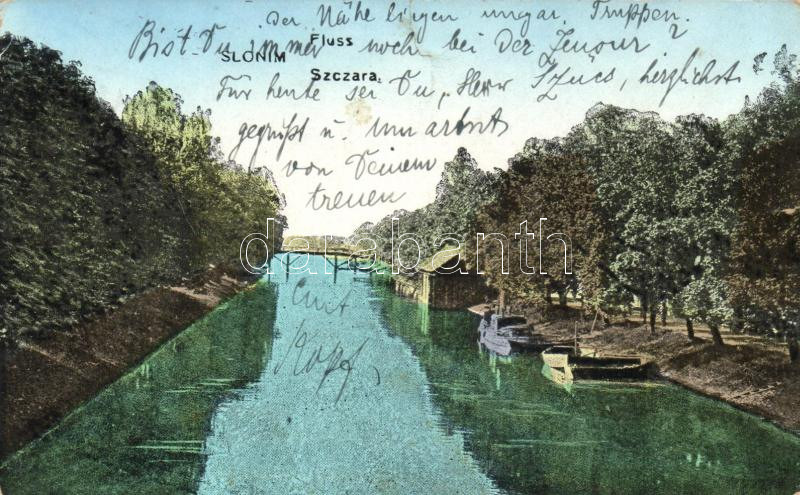 der Nähe liegen ungar. Truppen.
Bist Du immer noch bei der Zensur?
SLONIM
Fluss
Szczara.
Für heute sei Du, "Herr Szücs, herzlichst
gegrüßt u. umarmt
von Deinem
treuen
darabanth
Curt